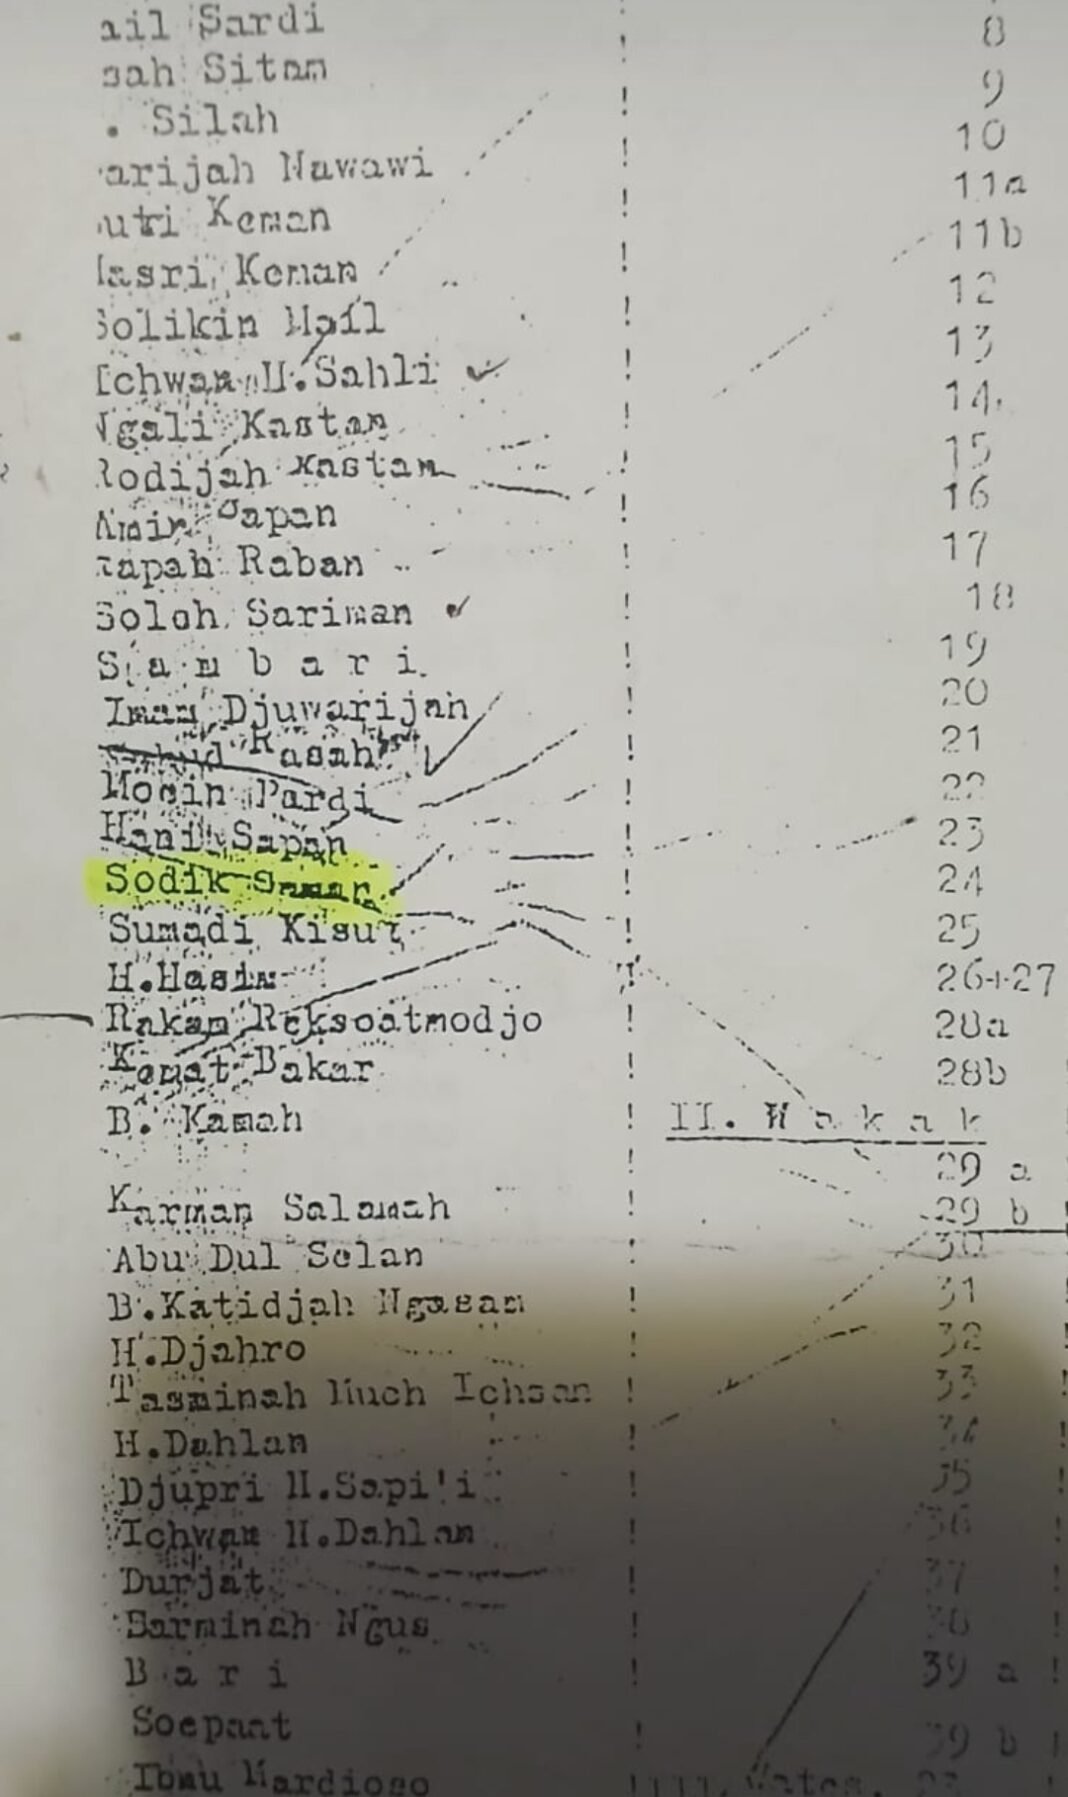 ail Sardi ! 8
sah Sitam ! 9
. Silah ! 10
arijah Nawawi ! 11a
uti Keman ! 11b
asri Keman ! 12
Solikin Mail ! 13
Ichwan H.Sahli ! 14
Ngali Kastam ! 15
Rodijah Kastam ! 16
Amin Sapan ! 17
apah Raban ! 18
Soleh Sariman ! 19
S a m b a r i ! 20
Imam Djuwarijah ! 21
Kasah ! 22
Mosin Pardi ! 23
Hani Sapan ! 24
Sodik ! 25
Sumadi ! 26+27
H.Hasim ! 28a
Rakam Reksoatmodjo ! 28b
Kemat Bakar
B. Kamah ! II. W a k a k
29 a
Karman Salamah ! 29 b
Abu Dul Selan ! 30
B.Katidjah Ngasam ! 31
H.Djahro ! 32
Tasminah Much Ichsan ! 33
H.Dahlan ! 34
Djupri H.Sapi'i ! 35
Ichwan H.Dahlan ! 36
Durjat ! 37
Sarminah Ngus ! 38
B a r i ! 39 a !
Soepaat ! 39 b !